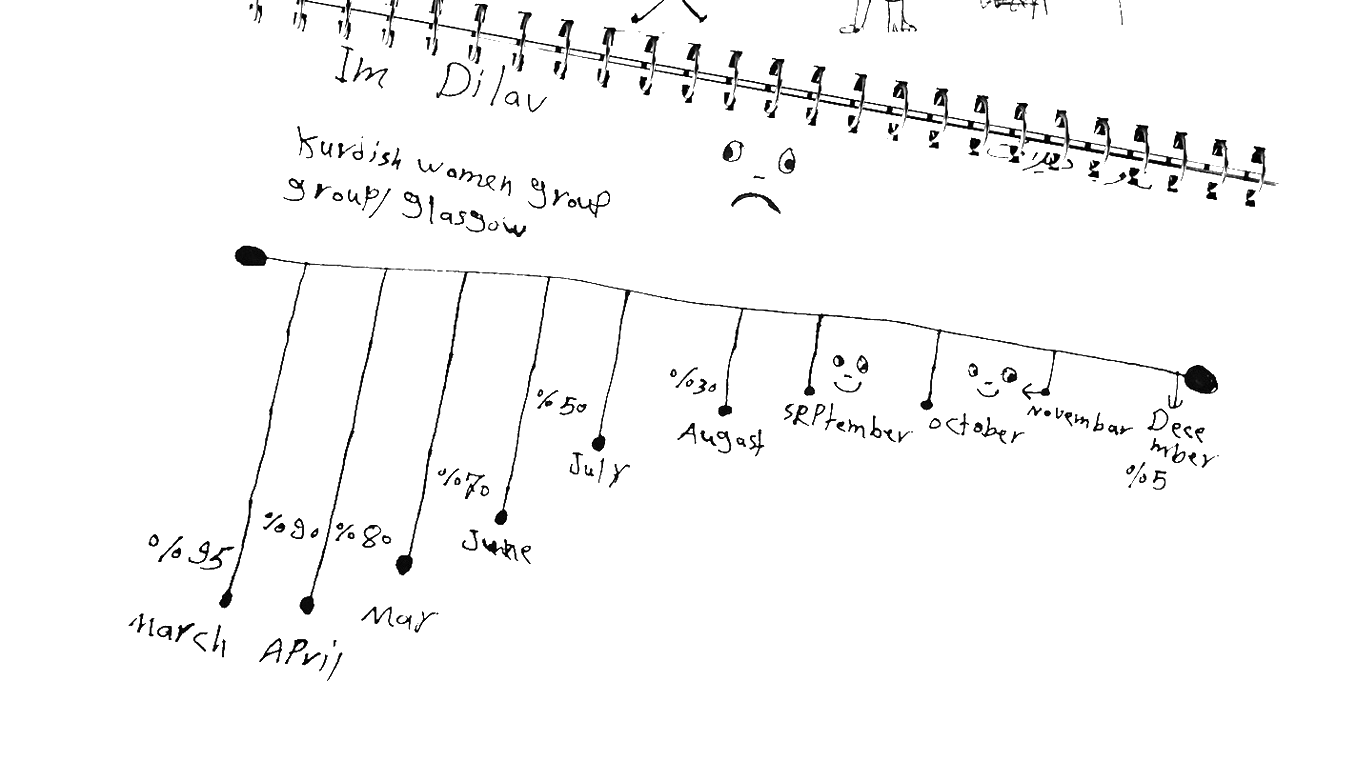 Im Dilav
Kurdish women group
group/ glasgow
%95
March
%90
April
%80
May
%70
June
%50
July
%30
Augast
september
october
Novembar
Dece
mber
%5